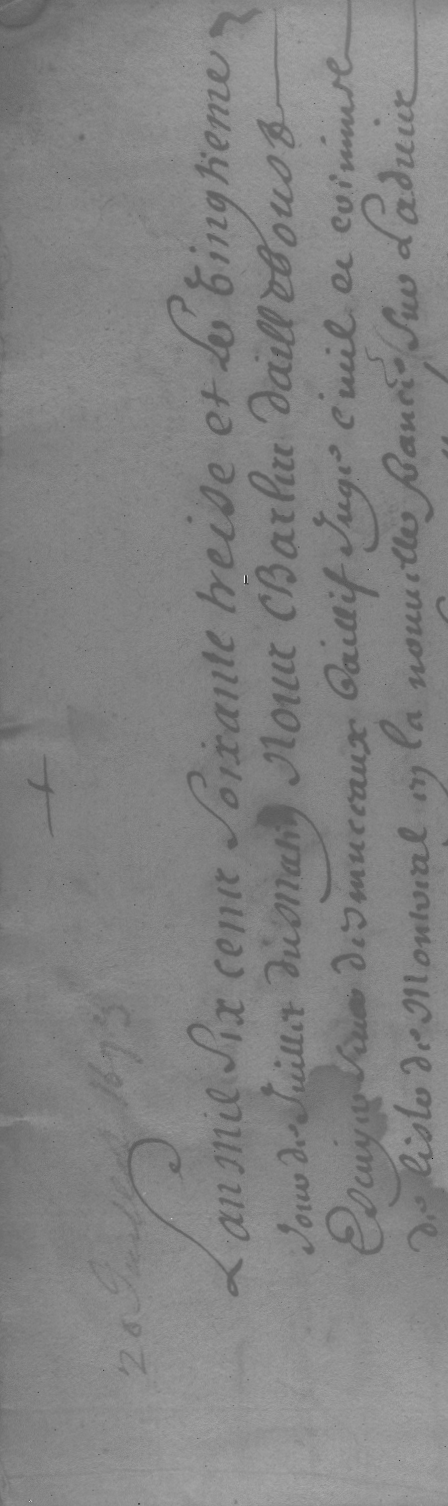 20 Juillet 1673
Lan mil Six cent Soixante treise et Le Vingtieme
Jour de Juillet du matin Nous Charles Dailleboust
Escuyer Sieur des musceaux Baillif Juge civil et criminel
de lisle de Montreal en la nouvelle france Sur Ladvis